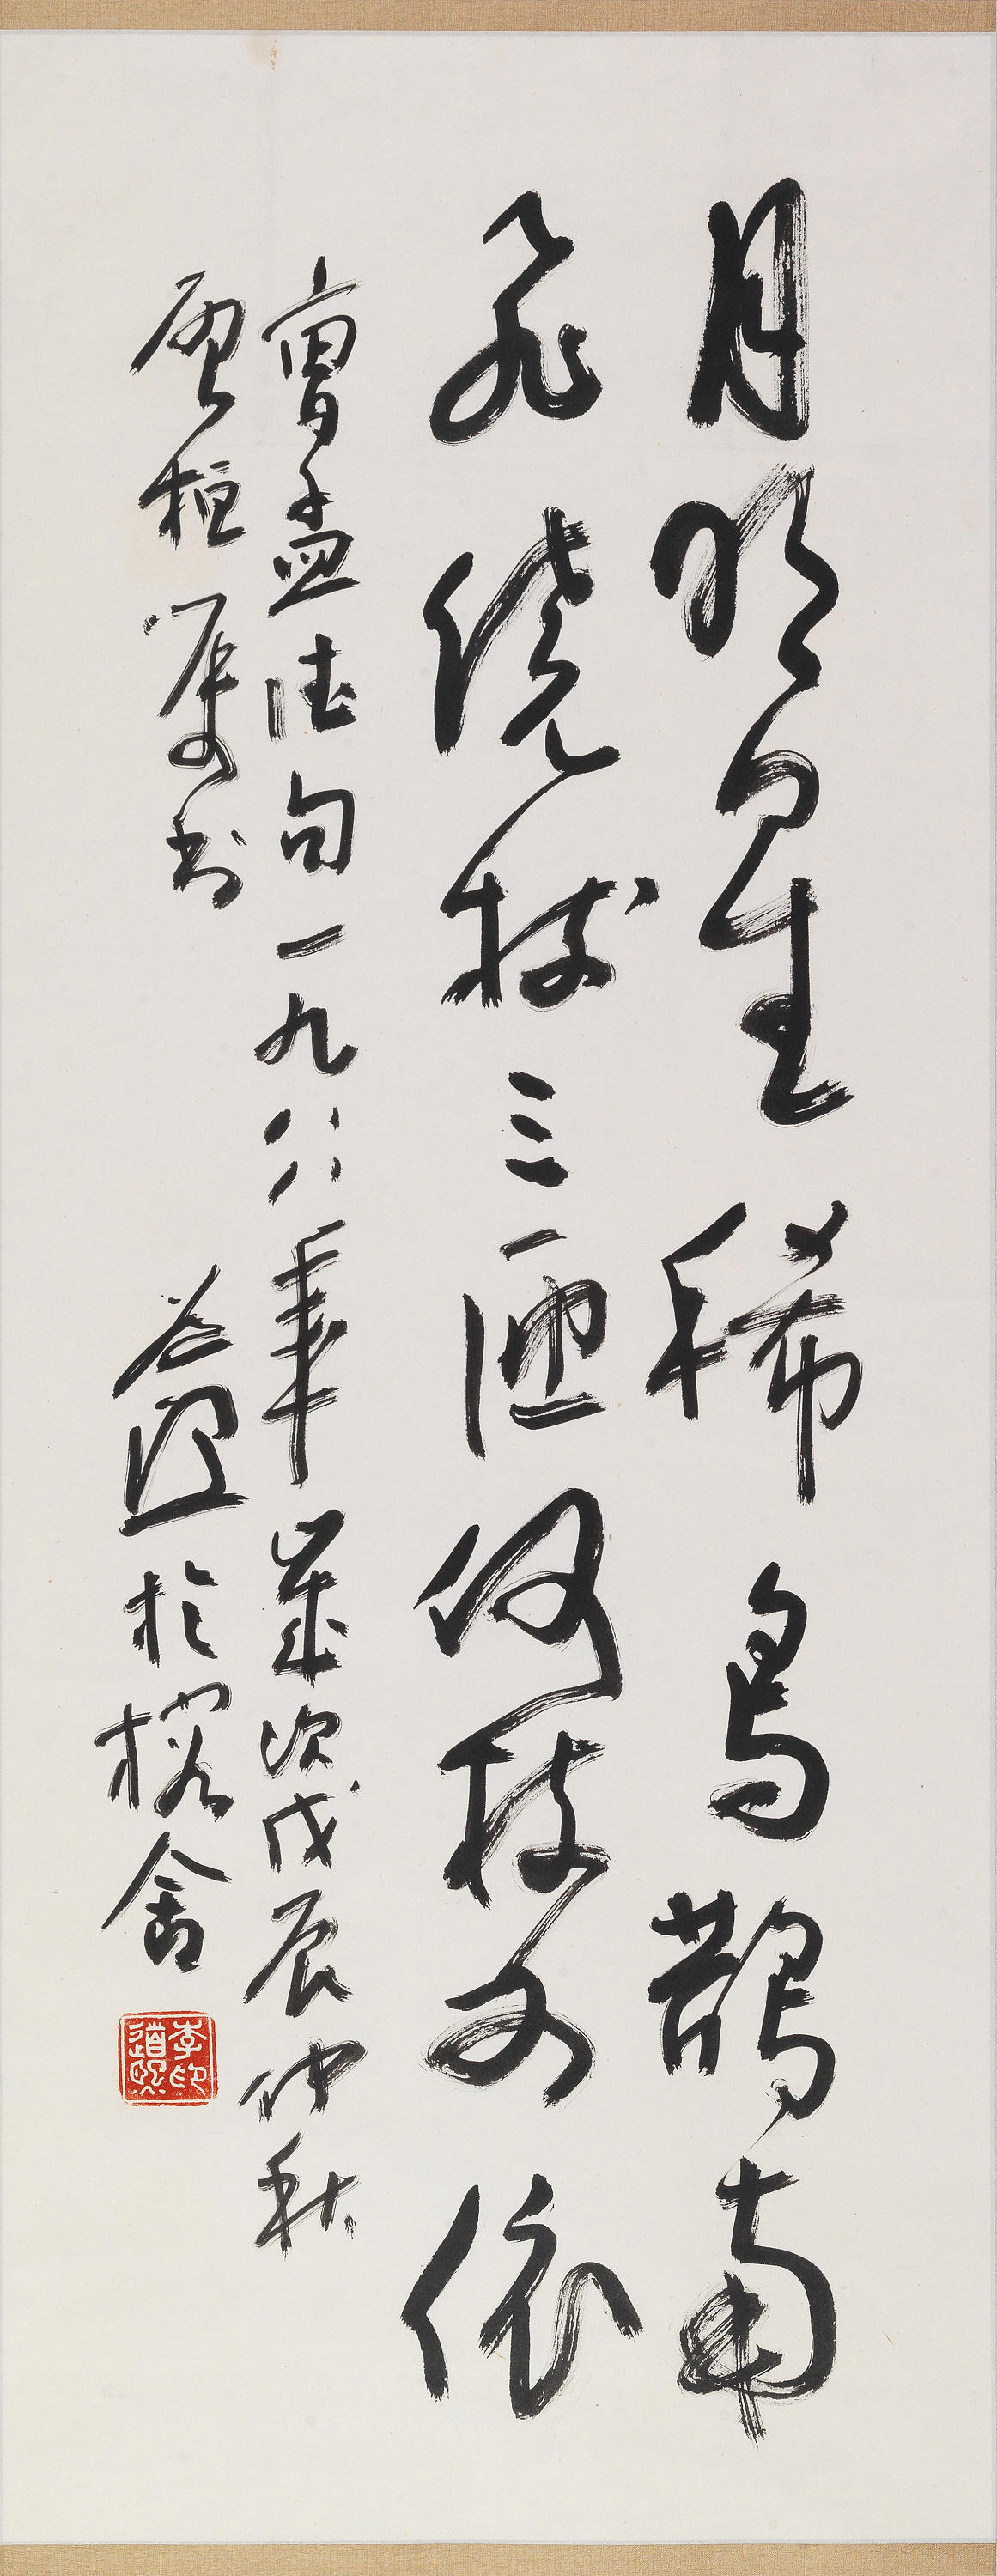 月明星稀烏鵲南
飛繞樹三匝何枝可依
曹孟德句一九八八年歲次戊辰仲秋
桓囑書 於榕舍
李印道熙